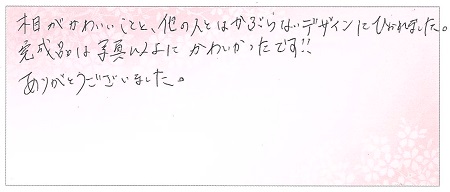 木目がかわいいことと、他の人とはかぶらないデザインにひかれました。
完成品は写真以上にかわいかったです!!
ありがとうございました。